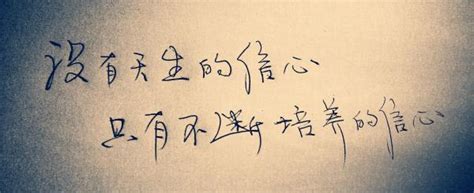 没有天生的信心
只有不断培养的信心